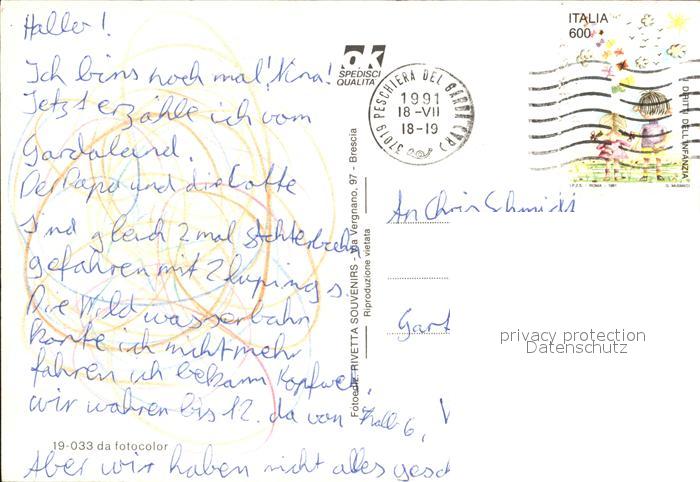 Hallo!
Ich bins noch mal! Nina!
Jetzt erzähle ich vom
Gardaland.
Der Papa und die Lotte
sind gleich 2 mal Achterbahn
gefahren mit 2 lupings.
Die Wild wasserbahn
konte ich nicht mehr
fahren ich bekamm Kopfweh.
wir wahren bis 12. da von halb 6,
Aber wir haben nicht alles gesch
19-033 da fotocolor
ok
SPEDISCI
QUALITÀ
Fotoediz. RIVETTA SOUVENIRS - Via Vergnano, 97 - Brescia
Riproduzione vietata
37019 PESCHIERA DEL GARDA (VR)
1991
18-VII
18-19
ITALIA
600
I DIRITTI DELL'INFANZIA
I.P.Z.S. - ROMA - 1991
An Chris Schmidt
Gart
privacy protection
Datenschutz